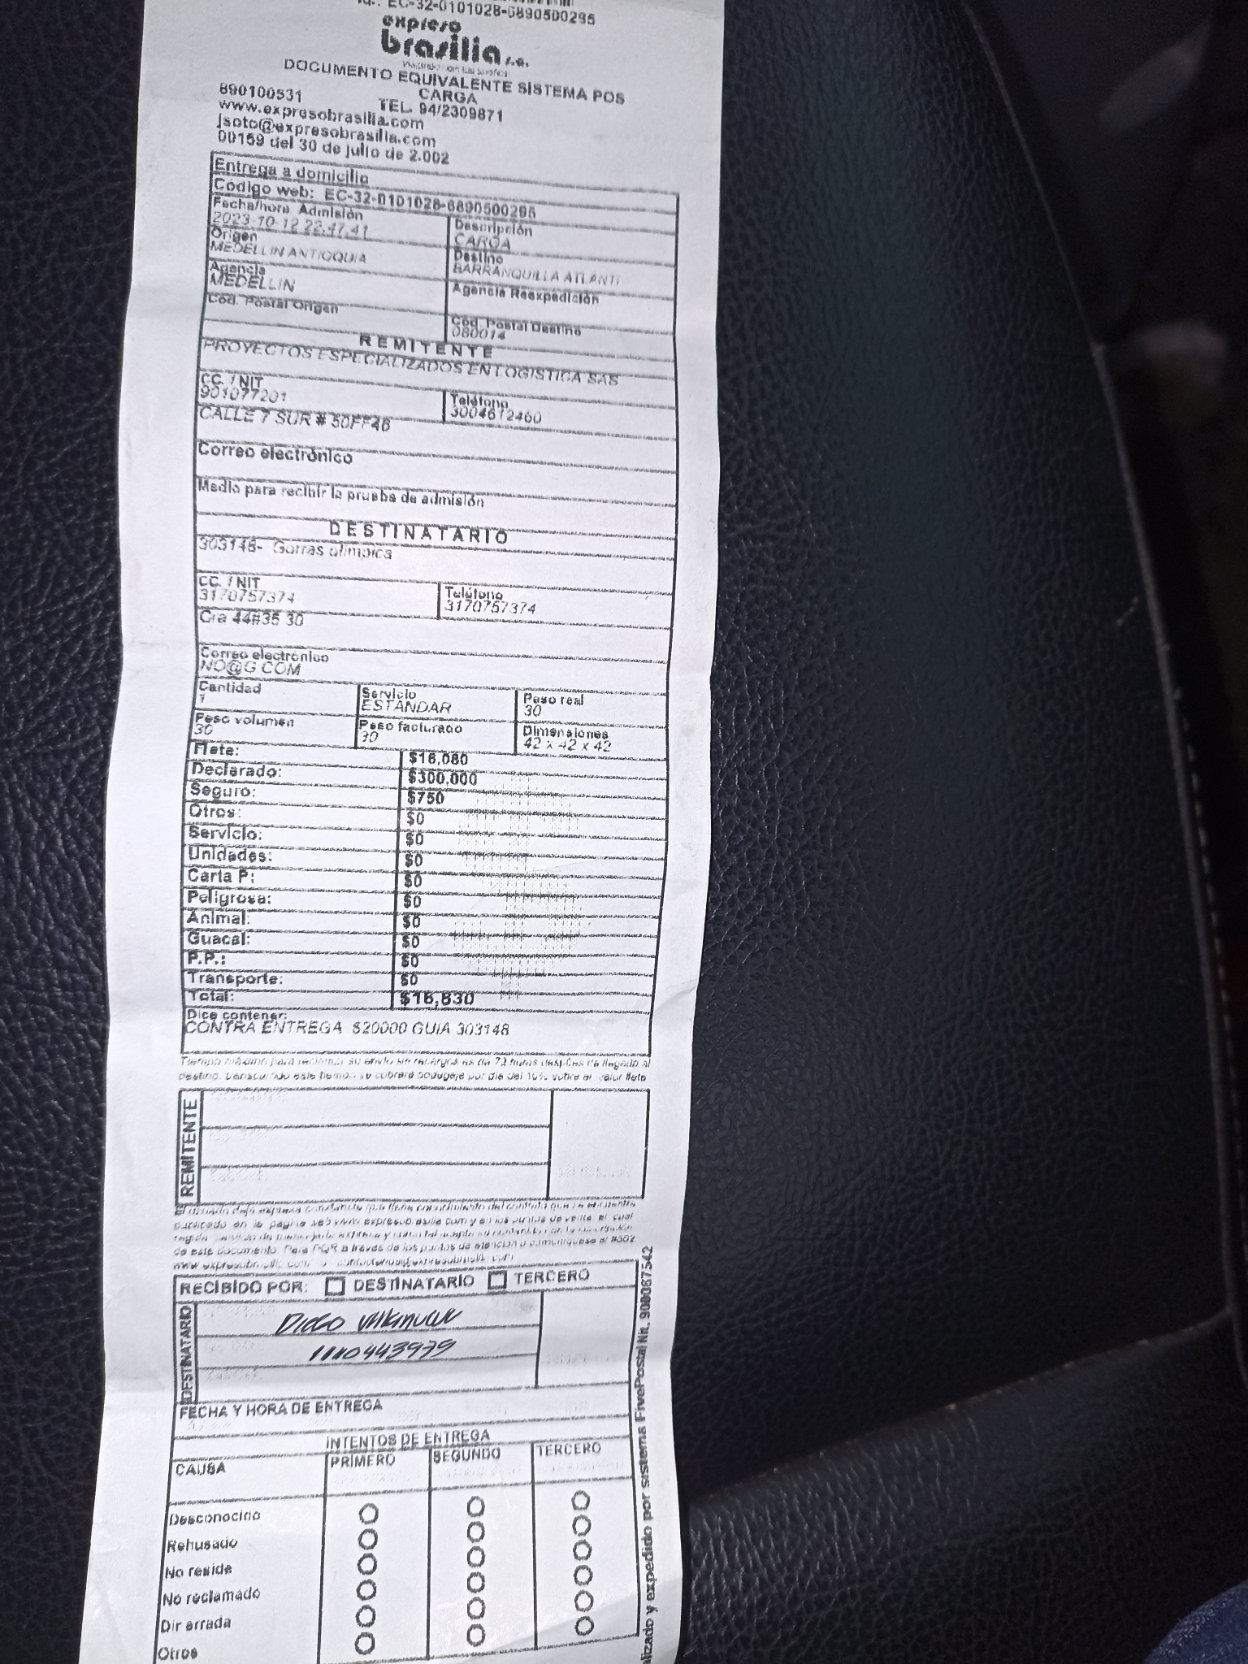 EC-32-0101028-6890500295
expreso
brasilia s.a.
DOCUMENTO EQUIVALENTE SISTEMA POS
CARGA
890100531 TEL. 94/2309871
www.expresobrasilia.com
jsoto@expresobrasilia.com
00159 del 30 de julio de 2.002
Entrega a domicilio
Código web: EC-32-0101028-6890500295
Fecha/hora Admisión Descripción
2023-10-12 22:47:41 CARGA
Origen Destino
MEDELLIN ANTIOQUIA BARRANQUILLA ATLANTI
Agencia Agencia Reexpedición
MEDELLIN
Cód. Postal Origen Cód. Postal Destino
080014
REMITENTE
PROYECTOS ESPECIALIZADOS EN LOGISTICA SAS
CC. / NIT Teléfono
901077201 3004612460
CALLE 7 SUR # 50FF46
Correo electrónico
Medio para recibir la prueba de admisión
DESTINATARIO
303148- Gorras olimpica
CC. / NIT Teléfono
3170757374 3170757374
Cra 44#35 30
Correo electrónico
NO@G.COM
Cantidad Servicio Peso real
1 ESTANDAR 30
Peso volumen Peso facturado Dimensiones
30 30 42 x 42 x 42
Flete: $16,080
Declarado: $300,000
Seguro: $750
Otros: $0
Servicio: $0
Unidades: $0
Carta P: $0
Peligrosa: $0
Animal: $0
Guacal: $0
P.P.: $0
Transporte: $0
Total: $16,830
Dice contener:
CONTRA ENTREGA $20000 GUIA 303148
Tiempo máximo para reclamar su envío sin recargos es de 72 horas después de llegado al
destino, transcurrido este tiempo se cobrará bodegaje por día del 10% sobre el valor flete
REMITENTE
publicado en la página web www.expresobrasilia.com y en los puntos de venta, el cual
de este documento. Para PQR a través de los puntos de atención o comuníquese al #502
RECIBIDO POR: DESTINATARIO TERCERO
DESTINATARIO
Diego
1110443979
FECHA Y HORA DE ENTREGA
INTENTOS DE ENTREGA
CAUSA PRIMERO SEGUNDO TERCERO
Desconocido
Rehusado
No reside
No reclamado
Dir errada
Otros
lizado y expedido por sistema FivePostal Nit. 900087542